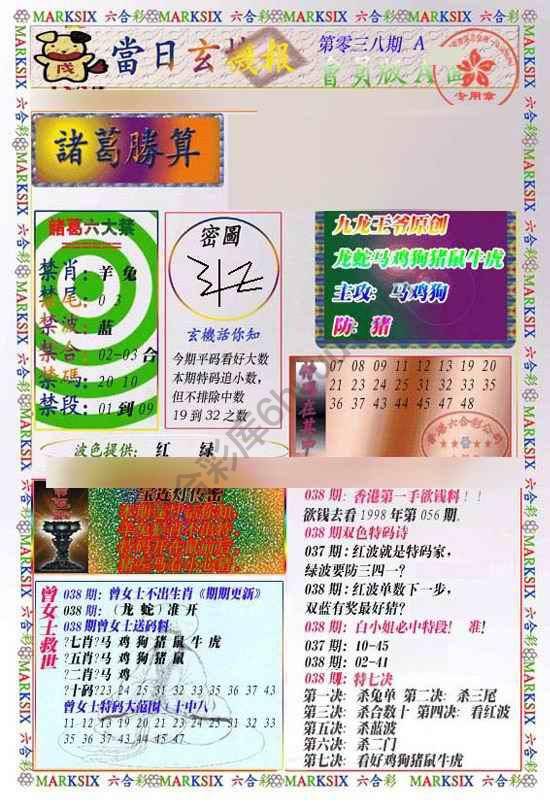 MARKSIX 六合彩 MARKSIX 六合彩 MARKSIX 六合彩 MARKSIX 六合彩
當日玄機報
第零三八期 A
會員版A面
专用章
諸葛勝算
諸葛六大禁
禁肖：羊 兔
禁尾：0 3
禁波：蓝
禁合：02-03 合
禁碼：20 10
禁段：01 到 09
密圖
玄機话你知
今期平码看好大数
本期特码追小数，
但不排除中数
19 到 32 之数
九龙王爷原创
龙蛇马鸡狗猪鼠牛虎
主攻：马鸡狗
防：猪
07 08 09 11 12 13 19 20
21 23 24 25 31 32 33 35
36 37 43 44 45 47 48
波色提供： 红 绿
038 期：香港第一手欲钱料！！
欲钱去看 1998 年第 056 期.
038 期双色特码诗
037 期：红波就是特码家，
绿波要防三四一？
038 期：红波单数下一步，
双蓝有奖最好猪？
038 期：白小姐必中特段！ 准！
037 期：10-45
038 期：02-41
038 期：特七决
第一决：杀兔单 第二决：杀三尾
第三决：杀合数十 第四决：看红波
第五决：杀蓝波
第六决：杀二门
第七决：看好鸡狗猪鼠牛虎
曾女士救世
038 期：曾女士不出生肖《期期更新》
038 期：（龙 蛇）准 开
038 期曾女士送码料：
?七肖?马 鸡 狗 猪 鼠 牛 虎
?五肖?马 鸡 狗 猪 鼠
?二肖?马 鸡
?十码?23 24 25 31 32 33 35 36 37 43
曾女士特码大范围（十中八）
11 12 13 19 20 21 23 24 25 31 32 33
35 36 37 43 44 45 47
MARKSIX 六合彩 MARKSIX 六合彩 MARKSIX 六合彩 MARKSIX 六合彩